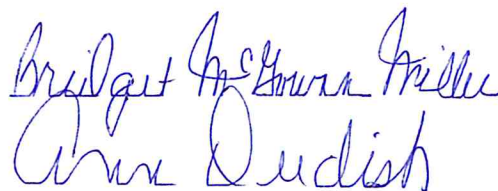 Bridget McGowan Miller
Ann Dudish